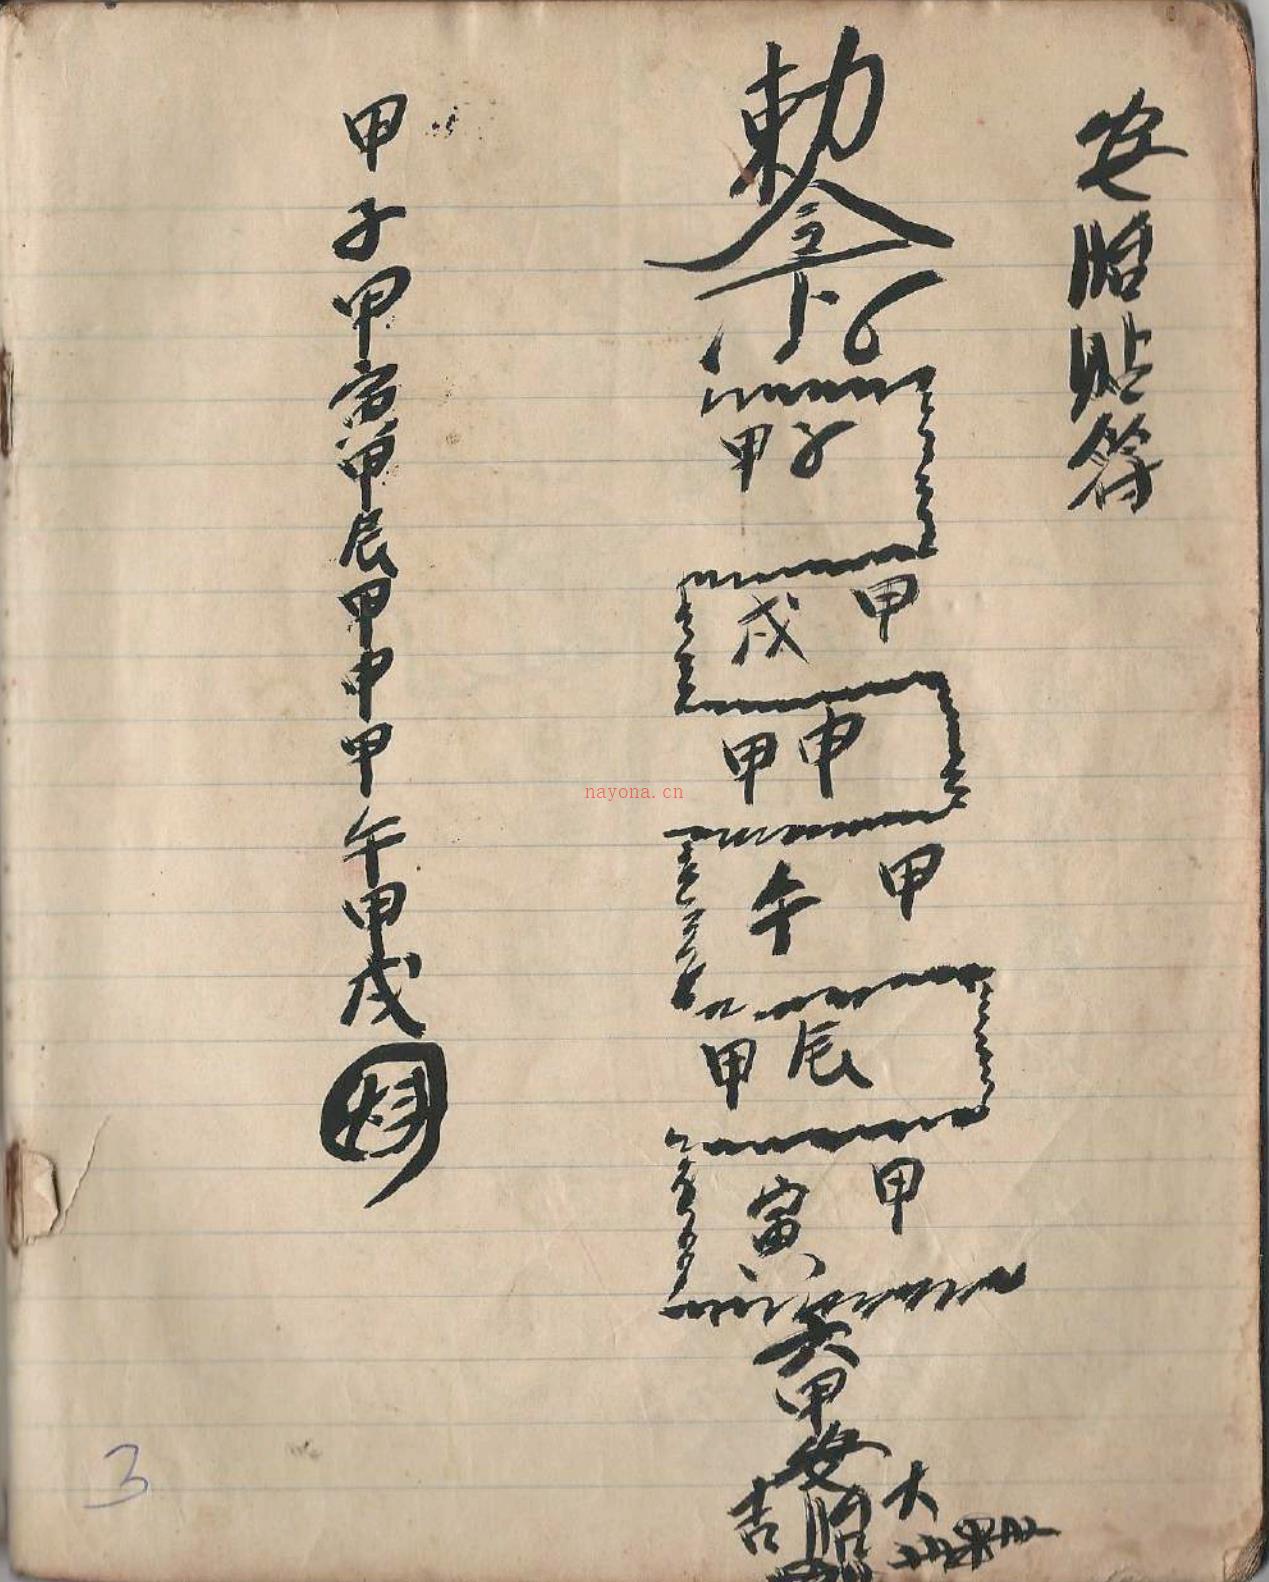 安胎貼符
勅令
甲子
甲戌
甲申
甲午
甲辰
甲寅
六甲安胎
大吉
甲子甲寅甲辰甲申甲午甲戌
nayona.cn
3